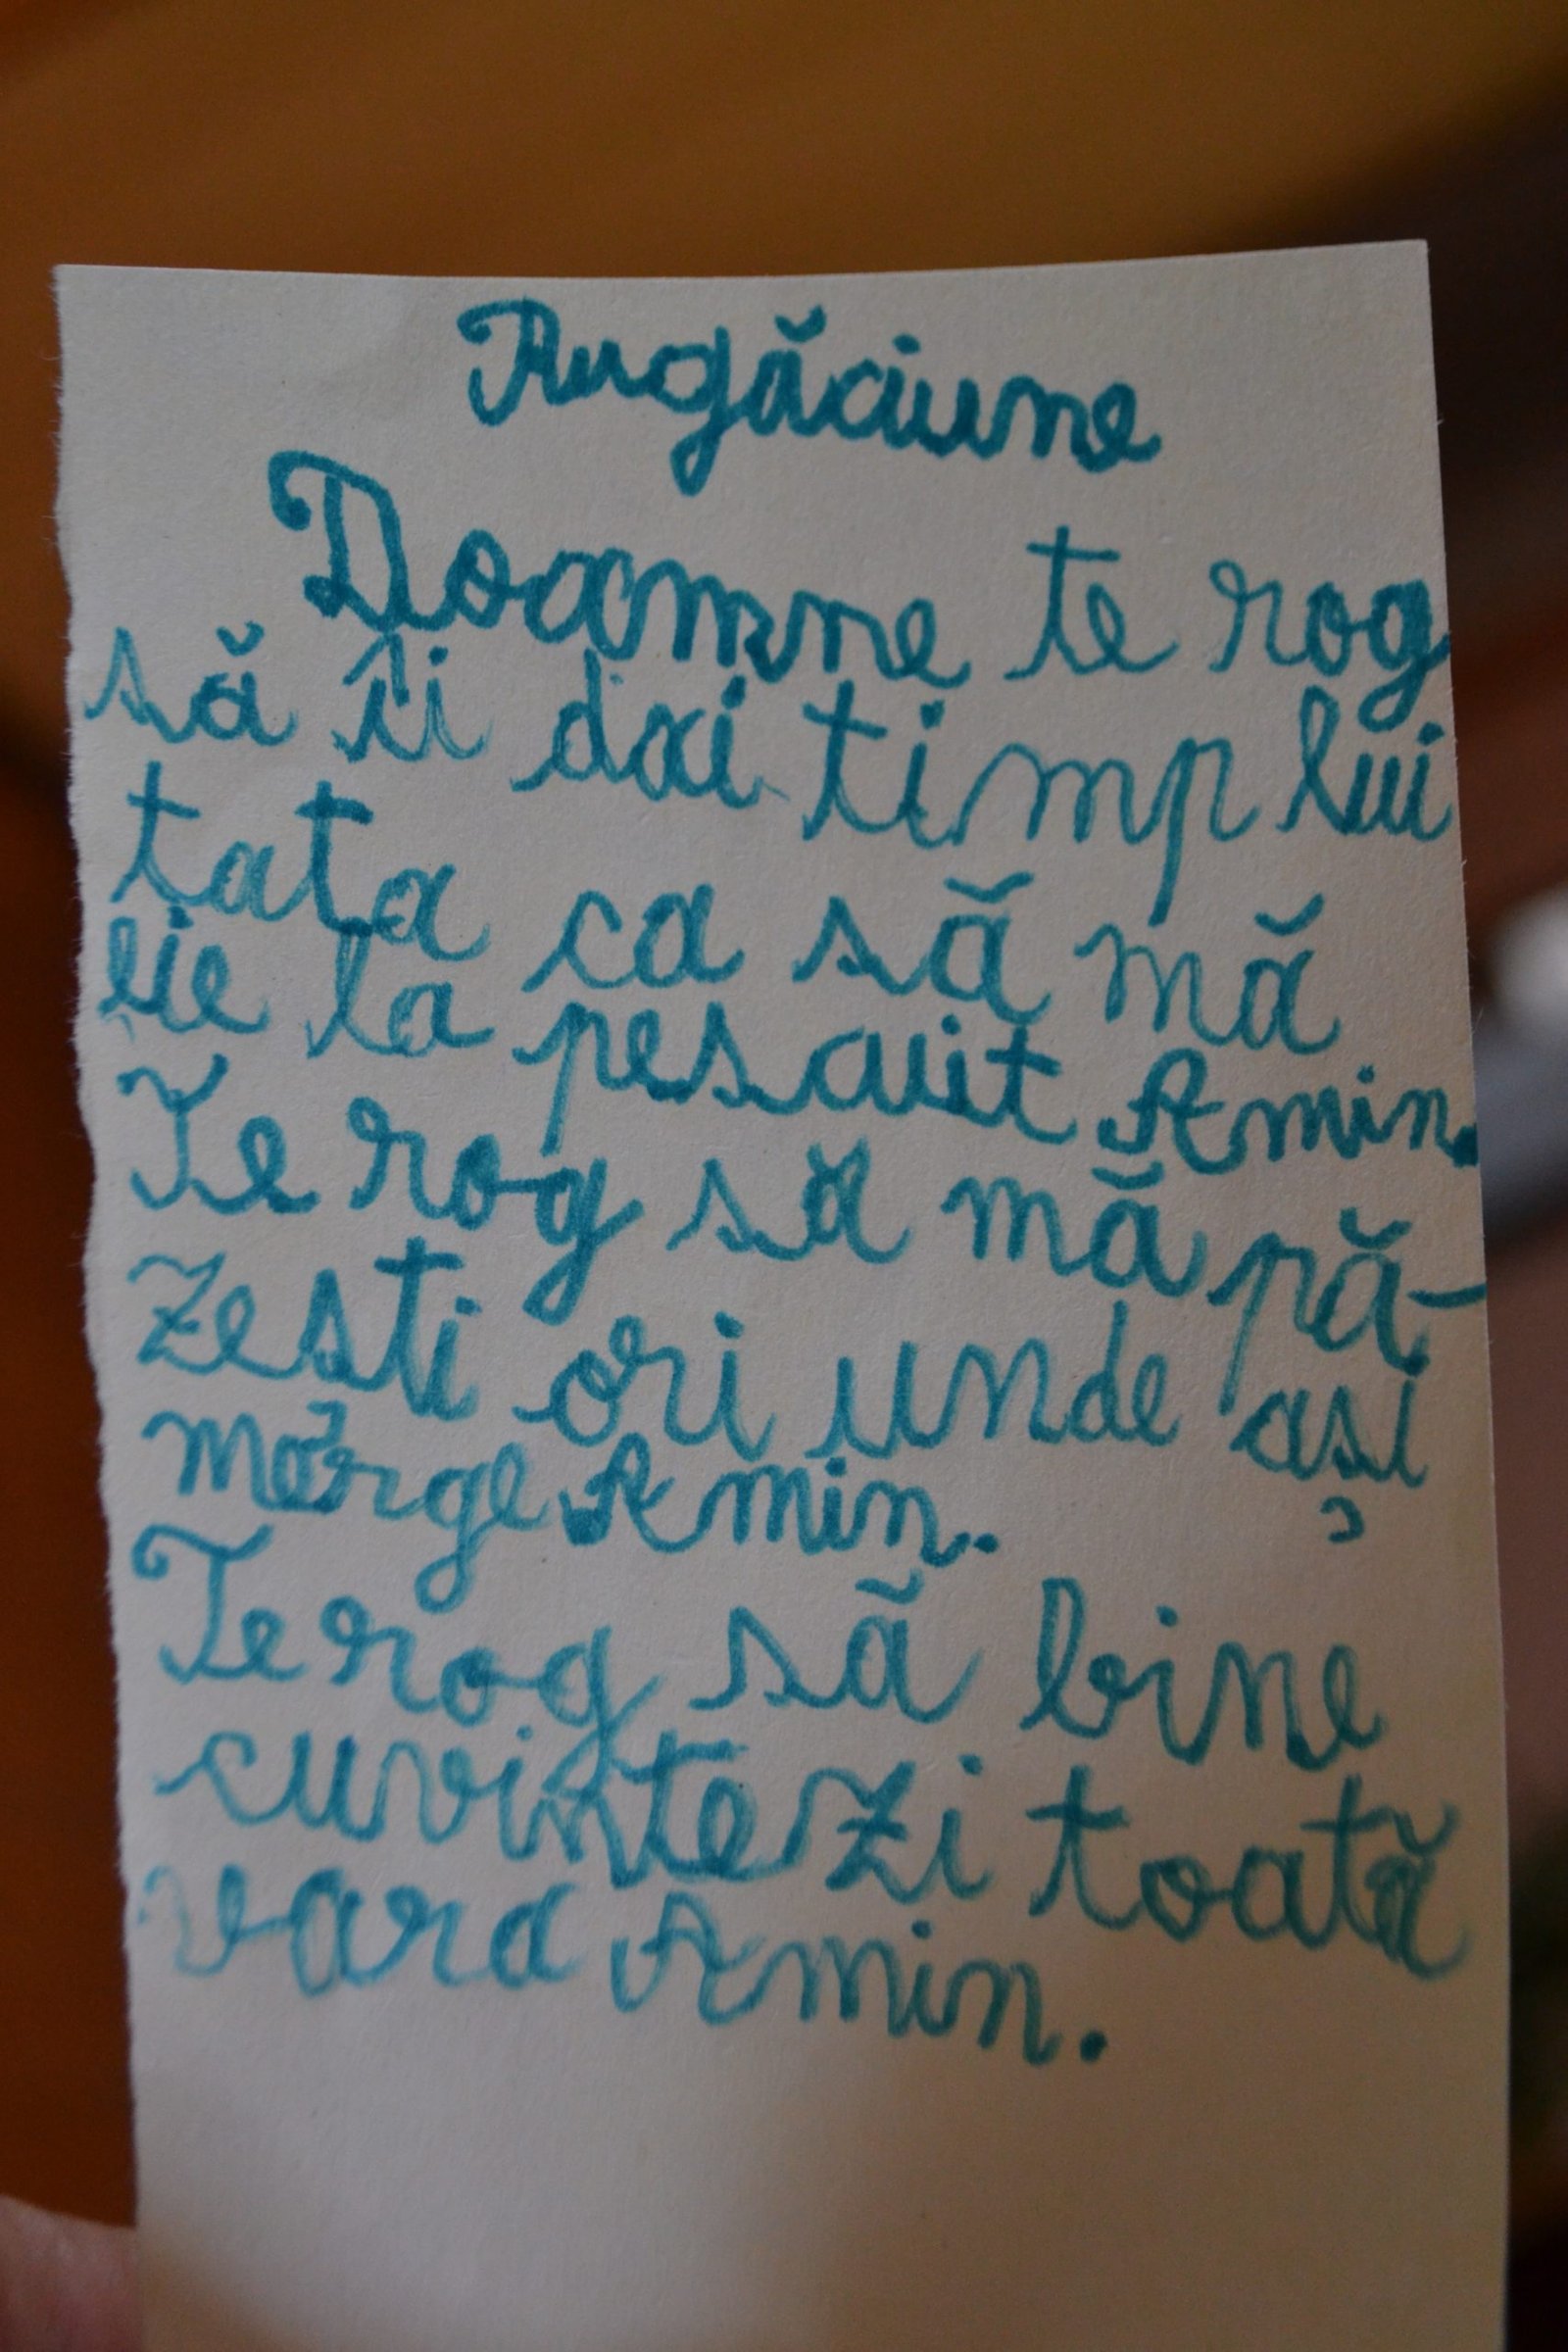 Rugăciune
Doamne te rog
să îi dai timp lui
tata ca să mă
eie la pescuit Amin.
Te rog să mă pă-
zesti ori unde ași
mărge Amin.
Te rog să bine
cuvintezi toată
vara Amin.